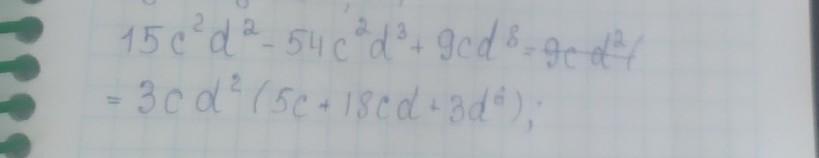 15c²d² - 54c²d³ + 9cd⁸ = 9cd²(
= 3cd²(5c + 18cd + 3d⁶);